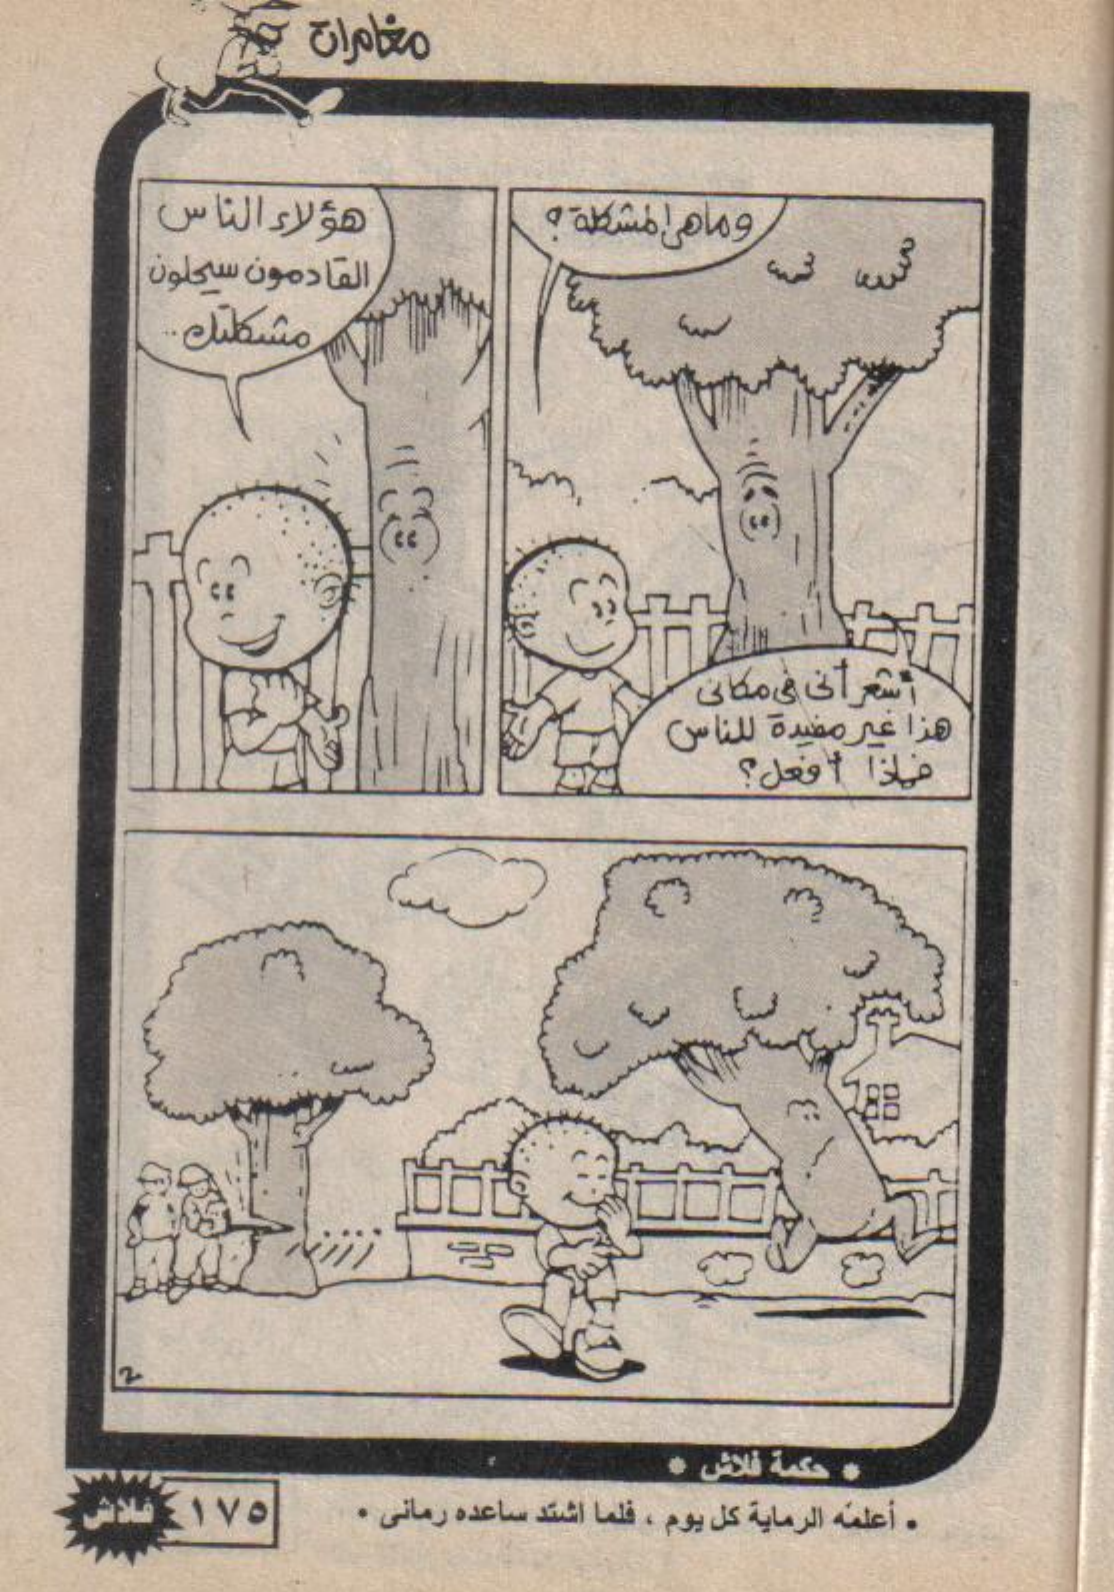 مغامرات
وماهى المشكلة ؟
أشعر أنى فى مكانى
هذا غير مفيدة للناس
فماذا أفعل؟
هؤلاء الناس
القادمون سيحلون
مشكلتك..
2
* حكمة فلاش *
• أعلمه الرماية كل يوم ، فلما اشتد ساعده رمانى •
١٧٥
فلاش